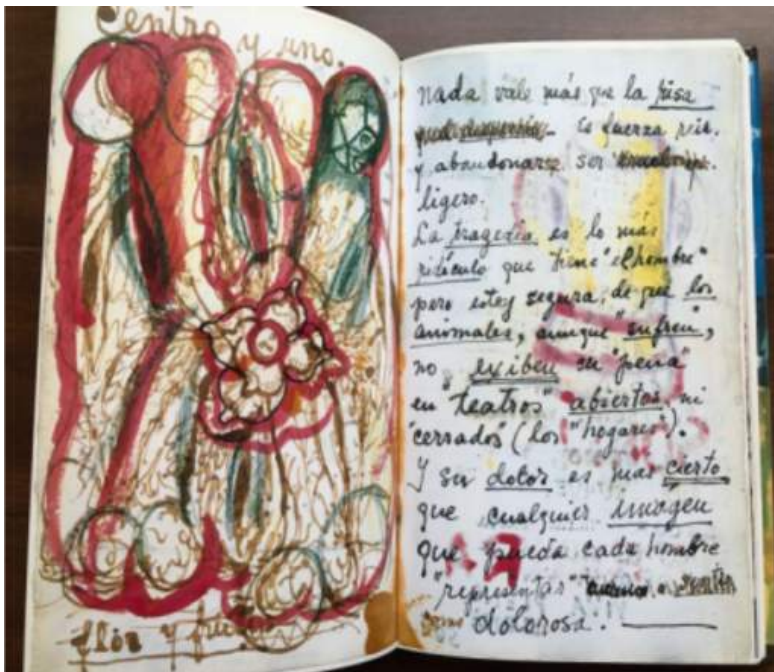 Centro y uno.
flor y fruto
nada vale más que la risa
Es fuerza reir
y abandonarse ser
ligero.
La tragedia es lo más
ridículo que tiene "el hombre"
pero estoy segura, de que los
animales, aunque "sufren",
no exiben su "pena"
en "teatros" abiertos, ni
"cerrados" (los "hogares").
Y su dolor es mas cierto
que cualquier imagen
que pueda cada hombre
"representar"
como dolorosa.